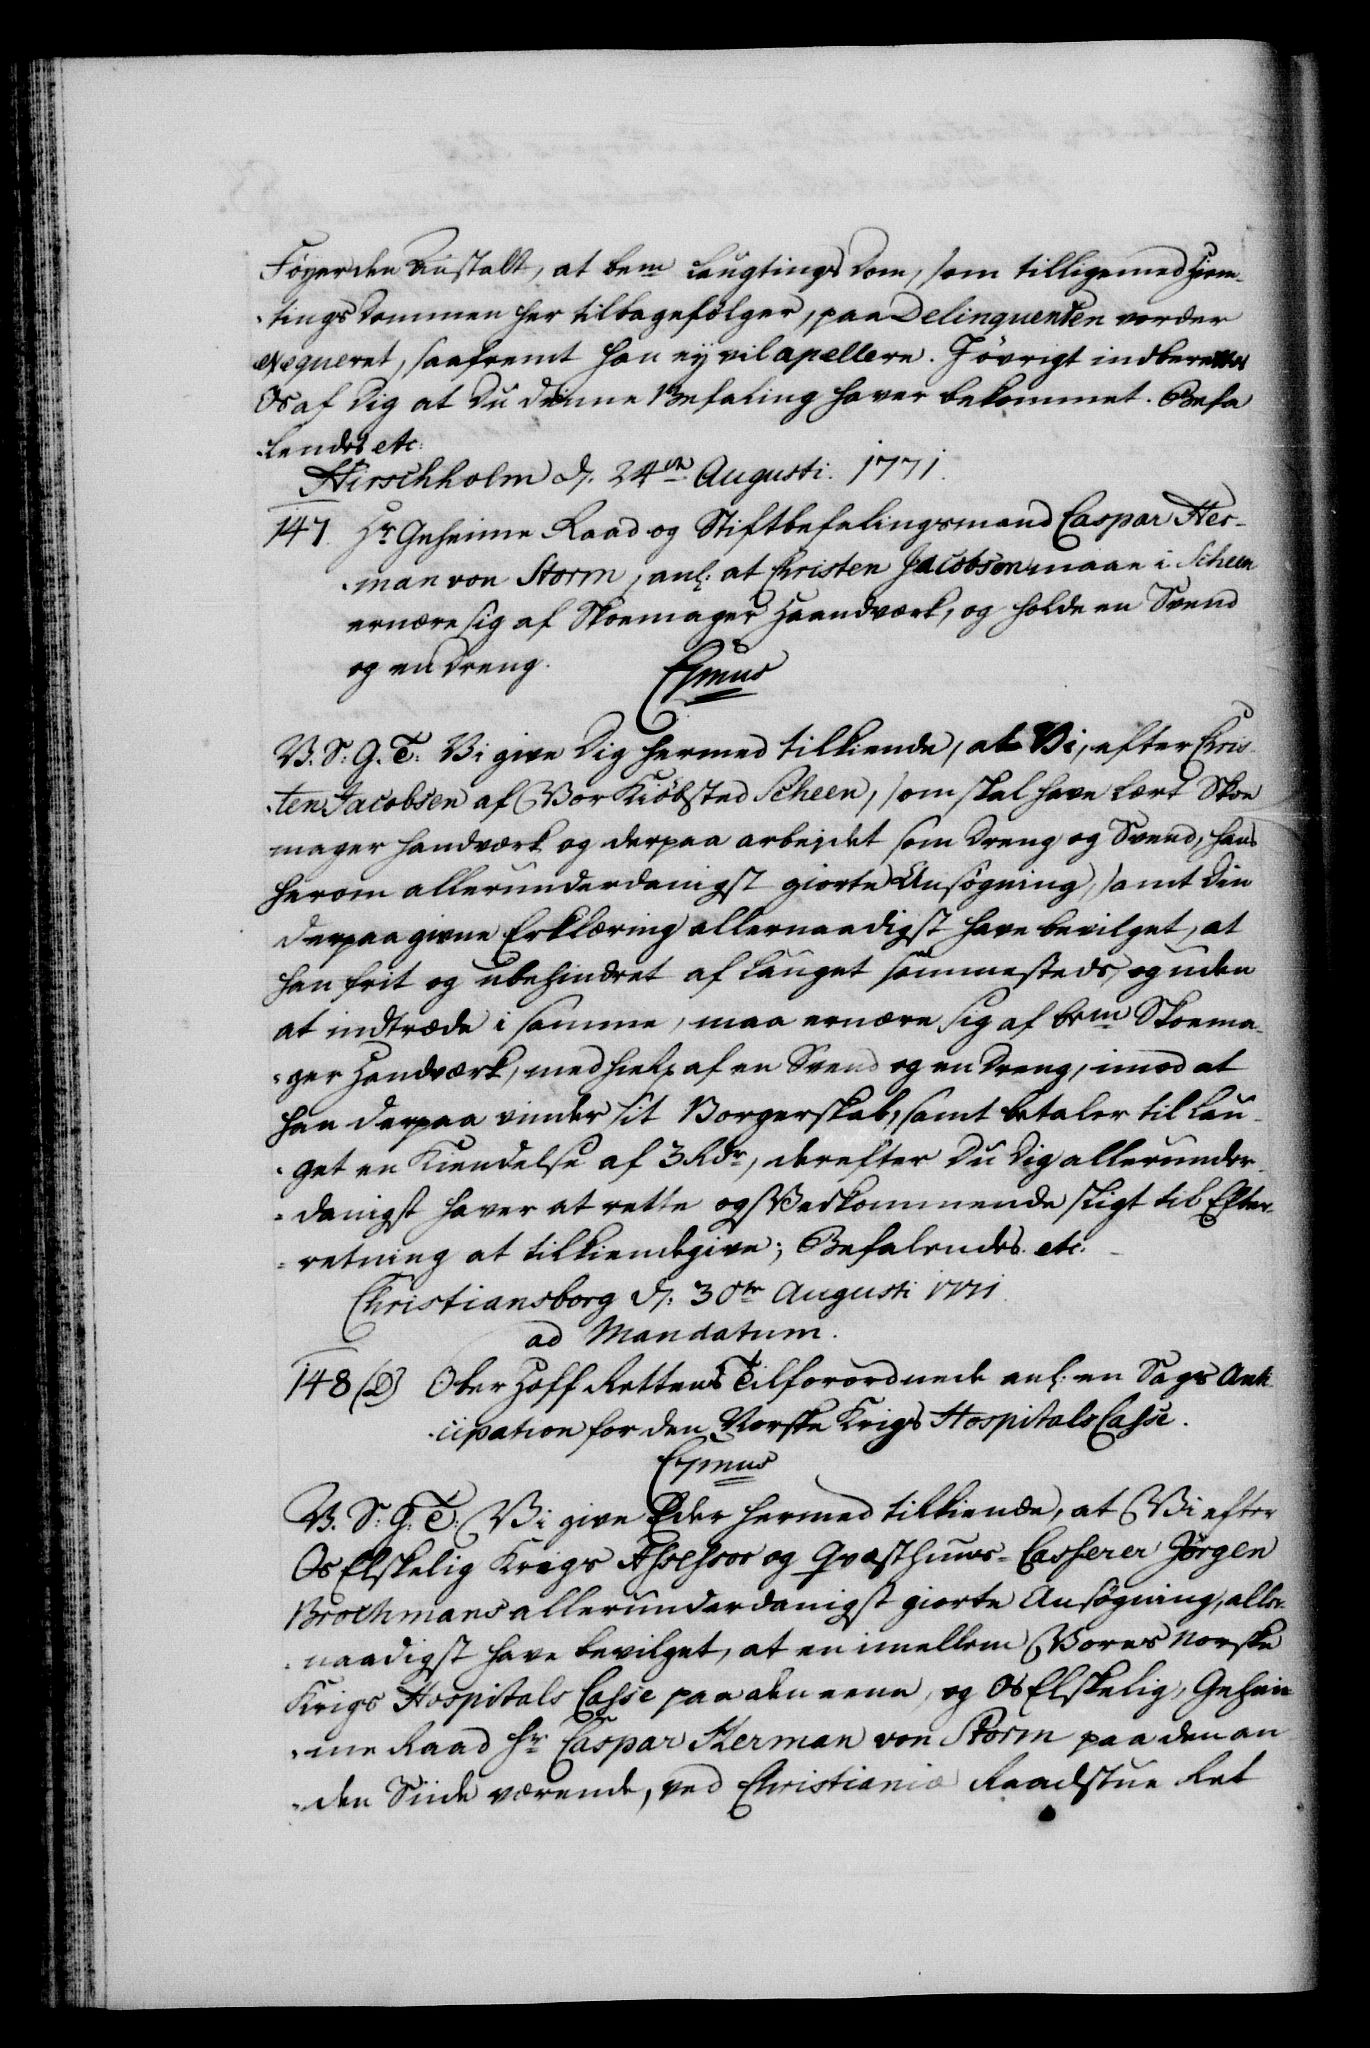 Föyer den Anstalt, at bem laugtings Dom, som tillige med Hiem-
-tings Dommen her tilbagefölger, paa Delinquenten vorder
exequeret, saafremt han ey vil apellere. I övrigt indberettes
Os af Dig at Du denne Befaling haver bekommet. Befa
lendes etc:
Hirschholm d: 24de Augusti. 1771.
147. Hr Geheime Raad og Stiftbefalingsmand Caspar Her-
-man von Storm, anl: at Christen Jacobsen maae i Scheen
ernære sig af Skoemager Haandværk, og holde en Svend
og en Dreng.
C7mus
V. S: G. T: Vi give Dig hermed tilkiende, at Vi, efter Chris-
-ten Jacobsen af Vor Kiöbsted Scheen, som skal have lært Skoe
mager handværk og derpaa arbejdet som Dreng og Svend, hans
herom allerunderdanigst giorte Ansögning, samt Din
derpaa givne Erklæring allernaadigst have bevilget, at
han frit og ubehindret af lauget sammesteds, og uden
at indtræde i samme, maa ernære sig af bem Skoema-
-ger Handværk, med hielp af en Svend og en Dreng, imod at
han derpaa vinder sit Borgerskab, samt betaler til Lau-
-get en Kiendelse af 3 Rdr, derefter Du Dig allerunder-
-danigst haver at rette og Vedkommende sligt til Efter-
-retning at tilkiendegive; Befalendes etc:
Christiansborg d: 30te Augusti 1771.
ad Mandatum.
148 (D) Ober Hoff Rettens Tilforordnede anl: en Sags Anti-
-cipation for den Norske Krigs Hospitals Casse.
C7mus
V. S: G: T: Vi give Eder hermed tilkiende, at Vi efter
Os Elskelig Krigs Assessor og Qvæsthuus-Casserer Jörgen
Brochmans allerunderdanigst giorte Ansögning, aller-
-naadigst have bevilget, at en imellem Vores Norske
Krigs Hospitals Casse paa den eene, og Os Elskelig, Gehei-
-me Raad Hr Caspar Herman von Storm paa den an
-den Siide værende, ved Christianiæ Raadstue Ret